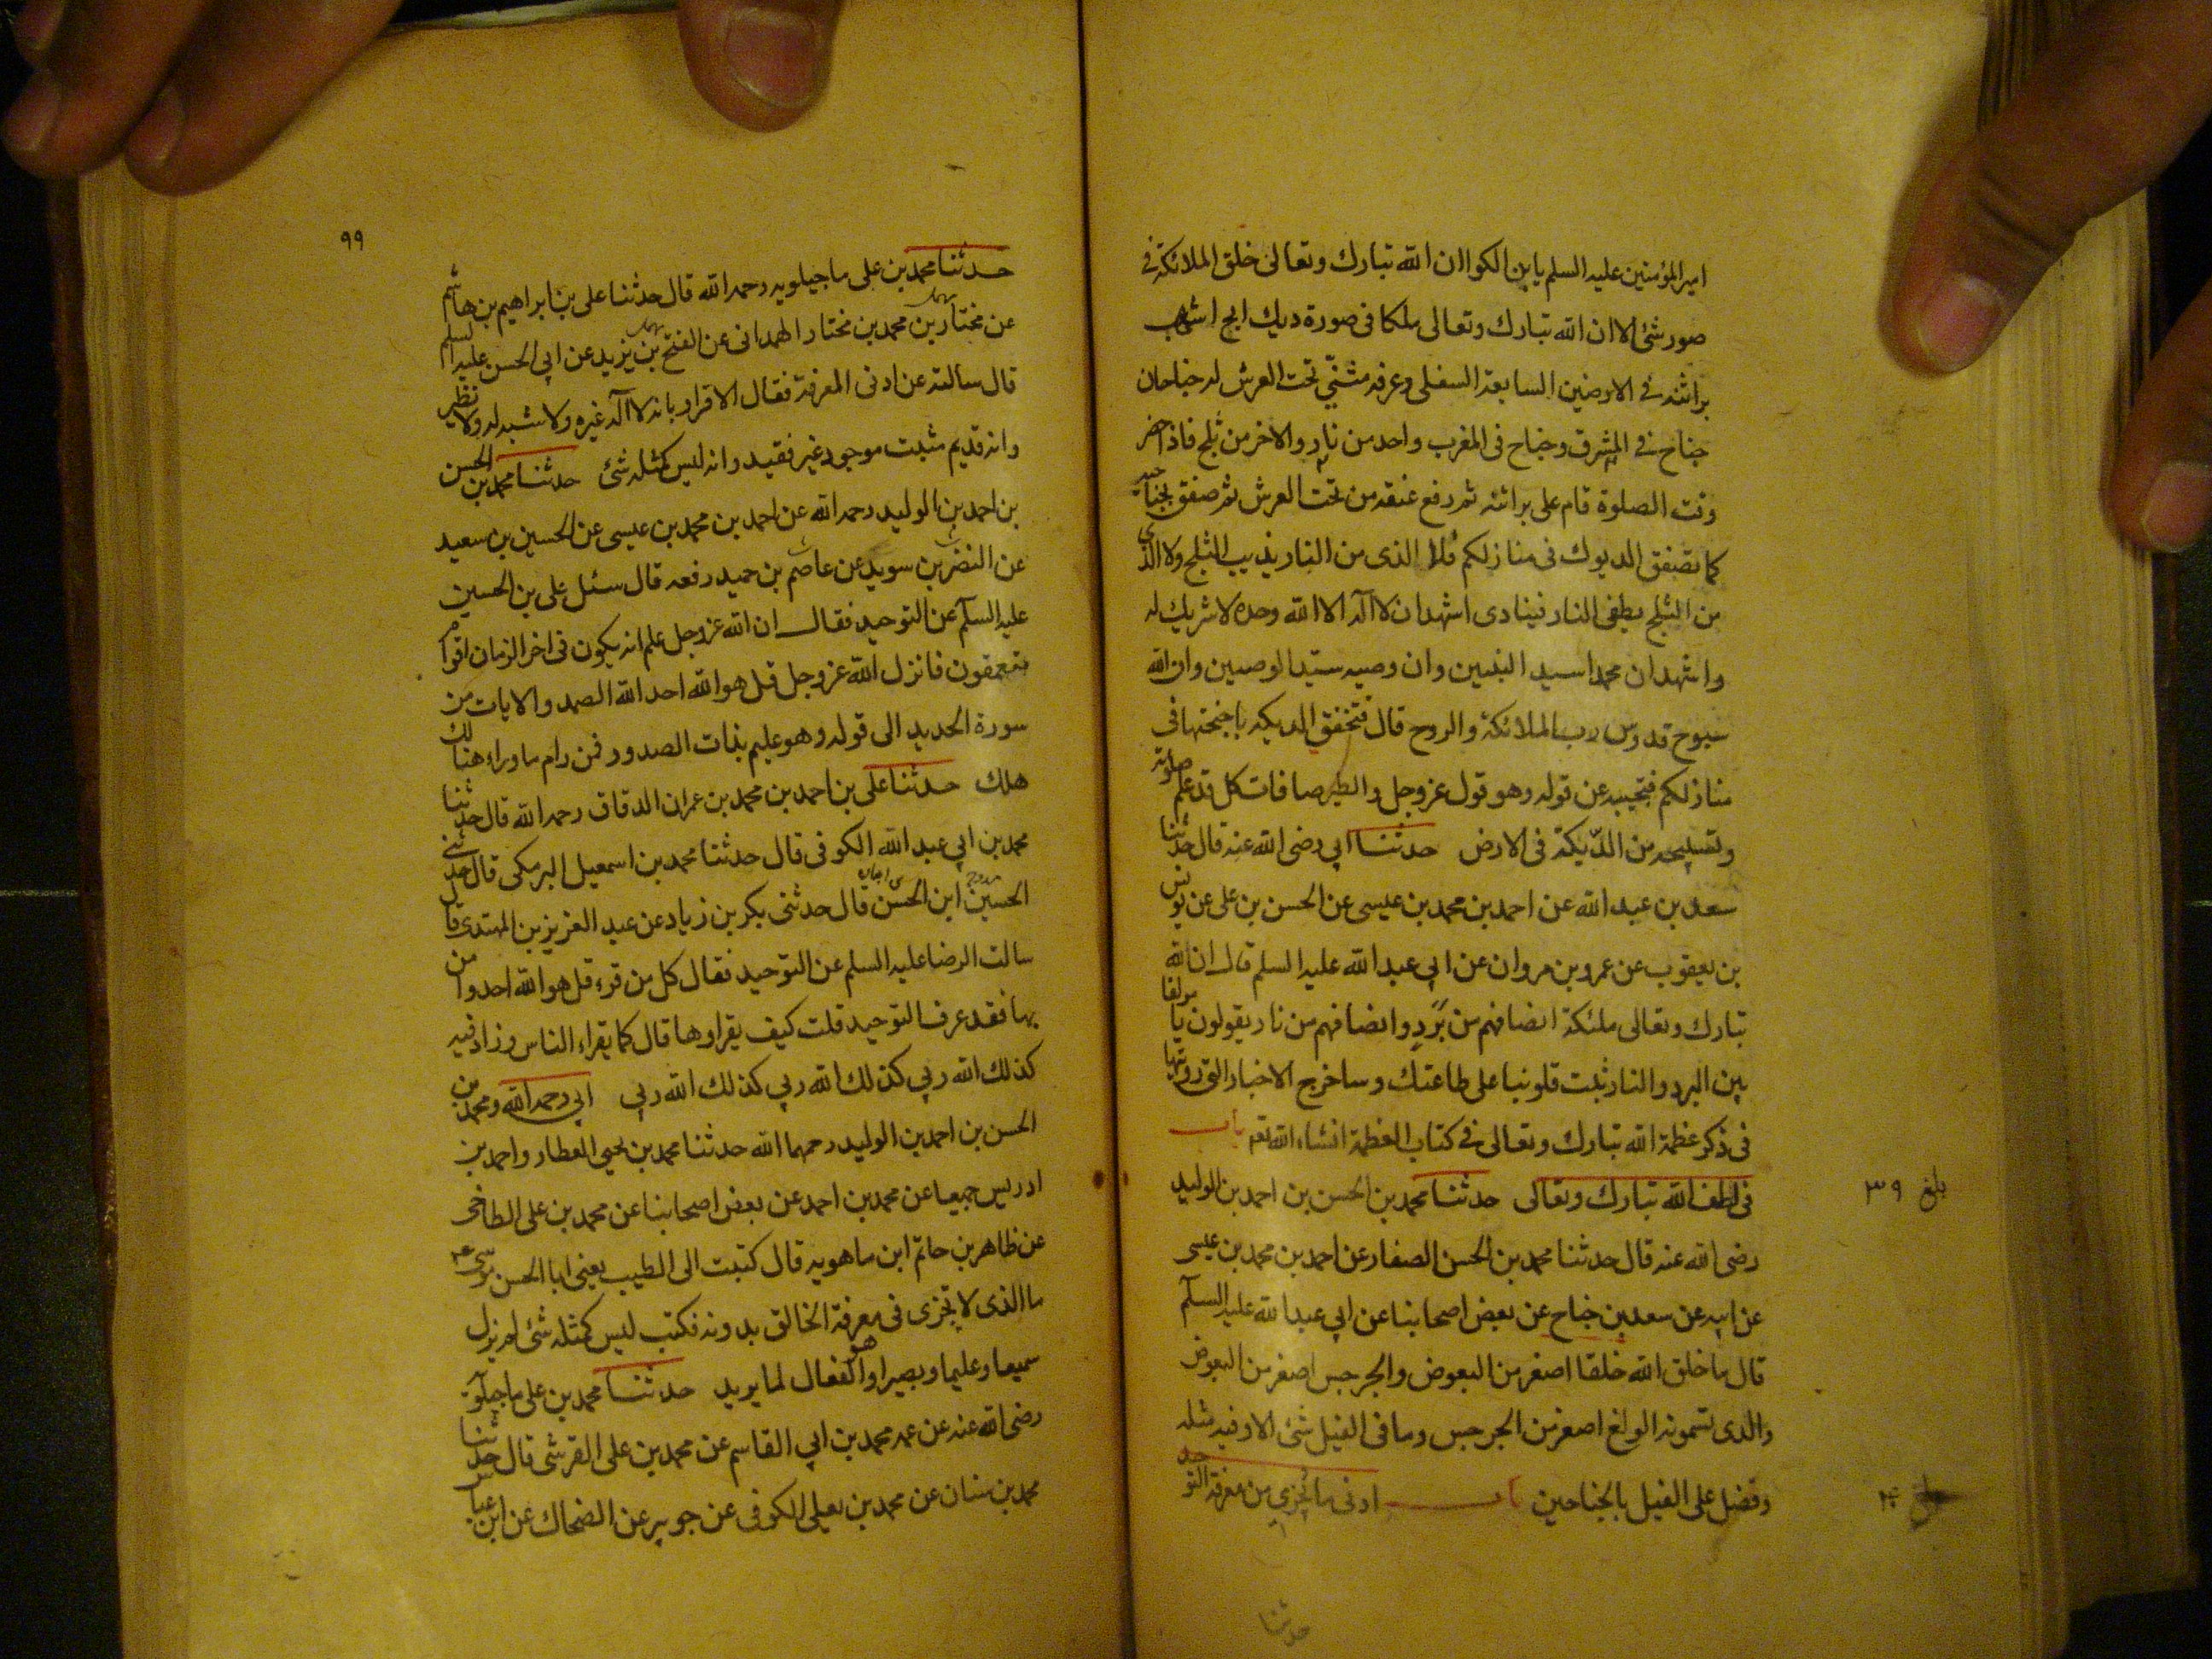 امير المؤمنين عليه السلم يا بن الكوا ان الله تبارك وتعالى خلق الملائكة فى
صور شئ الا ان الله تبارك وتعالى ملكا فى صورة ديك ابح اشهب
براثنه فى الارضين السابعة السفلى وعرفه مثنّي تحت العرش له جناحان
جناح فى المشرق وجناح فى المغرب واحد من نار والاخر من ثلج فاذا حضر
وقت الصلوة قام على براثنه ثم رفع عنقه من تحت العرش ثم صفق بجناحيه
كما تصفق الديوك فى منازلكم فلا الذى من النار يذيب الثلج ولا الذى
من الثلج يطفى النار فينادى اشهد ان لا اله الا الله وحده لا شريك له
واشهد ان محمدا سيد النبيين وان وصيه سيد الوصيين وان الله
سبوح قدوس رب الملائكة والروح قال فتخفق الديكه باجنحتها فى
منازلكم فتجيبه عن قوله وهو قول عز وجل والطير صافات كل قد علم صلوته
وتسبيحه من الدّيكة فى الارض حدثنا ابى رضى الله عنه قال حدثنا
سعد بن عبد الله عن احمد بن محمد بن عيسى عن الحسن بن على عن يونس
بن يعقوب عن عمرو بن مروان عن ابى عبد الله عليه السلم قال ان لله
تبارك وتعالى ملئكة انصافهم من بَرَدٍ وانصافهم من نار يقولون يا مولفا
بين البرد والنار ثبت قلوبنا على طاعتك وساخرج الاخبار التى رويتها
فى ذكر عظمة الله تبارك وتعالى فى كتاب العظمة انشاء الله تعم باب
فى لطف الله تبارك وتعالى حدثنا محمد بن الحسن بن احمد بن الوليد
بلغ ٣٩
رضى الله عنه قال حدثنا محمد بن الحسن الصفار عن احمد بن محمد بن عيسى
عن ابيه عن سعد بن جناح عن بعض اصحابنا عن ابى عبد الله عليه السلم
قال ما خلق الله خلقا اصغر من البعوض والجرجس اصغر من البعوض
والذى تسمونه الولغ اصغر من الجرجس وما فى الفيل شئ الا وفيه مثله
وفضل على الفيل بالجناحين باب ادنى ما يجزي من معرفة التوحيد
حدثنا
٩٩
حدثنا محمد بن على ماجيلويه رحمه الله قال حدثنا على بن ابراهيم بن هاشم
عن مختار بن محمد بن مختار الهمدانى عن الفتح بن يزيد عن ابى الحسن عليه السلم
قال سالته عن ادنى المعرفة فقال الاقرار بانه لا اله غيره ولا شبه له ولا نظير
وانه قديم مثبت موجود غير فقيد وانه ليس كمثله شئ حدثنا محمد بن الحسن
بن احمد بن الوليد رحمه الله عن احمد بن محمد بن عيسى عن الحسين بن سعيد
عن النضر بن سويد عن عاصم بن حميد رفعه قال سئل على بن الحسين
عليه السلم عن التوحيد فقال ان الله عز وجل علم انه يكون فى اخر الزمان اقوام
متعمقون فانزل الله عز وجل قل هو الله احد الله الصمد والايات من
سورة الحديد الى قوله وهو عليم بذات الصدور فمن رام ما وراء هنالك
هلك حدثنا على بن احمد بن محمد بن عمران الدقاق رحمه الله قال حدثنا
محمد بن ابى عبد الله الكوفى قال حدثنا محمد بن اسمعيل البرمكى قال حدثنى
الحسين ابن الحسن قال حدثنى بكر بن زياد عن عبد العزيز بن المهتدى قال
سالت الرضا عليه السلم عن التوحيد فقال كل من قرء قل هو الله احد وامن
بها فقد عرف التوحيد قلت كيف يقراوها قال كما يقراء الناس وزاد فيه
كذلك الله ربى كذلك الله ربى كذلك الله ربى ابى رحمه الله ومحمد بن
الحسن بن احمد بن الوليد رحمهما الله حدثنا محمد بن يحيى العطار واحمد بن
ادريس جميعا عن محمد بن احمد عن بعض اصحابنا عن محمد بن على الطاحى
عن طاهر بن حاتم ابن ماهويه قال كتبت الى الطيب يعنى ابا الحسن موسى عم
ما الذى لا تجزى فى معرفة الخالق بدونه فكتب ليس كمثله شئ لم يزل
سميعا وعليما وبصيرا وهو الفعال لما يريد حدثنا محمد بن على ماجيلويه
رضى الله عنه عن عمه محمد بن ابى القاسم عن محمد بن على القرشى قال حدثنا
محمد بن سنان عن محمد بن يعلى الكوفى عن جويبر عن الضحاك عن ابن عباس